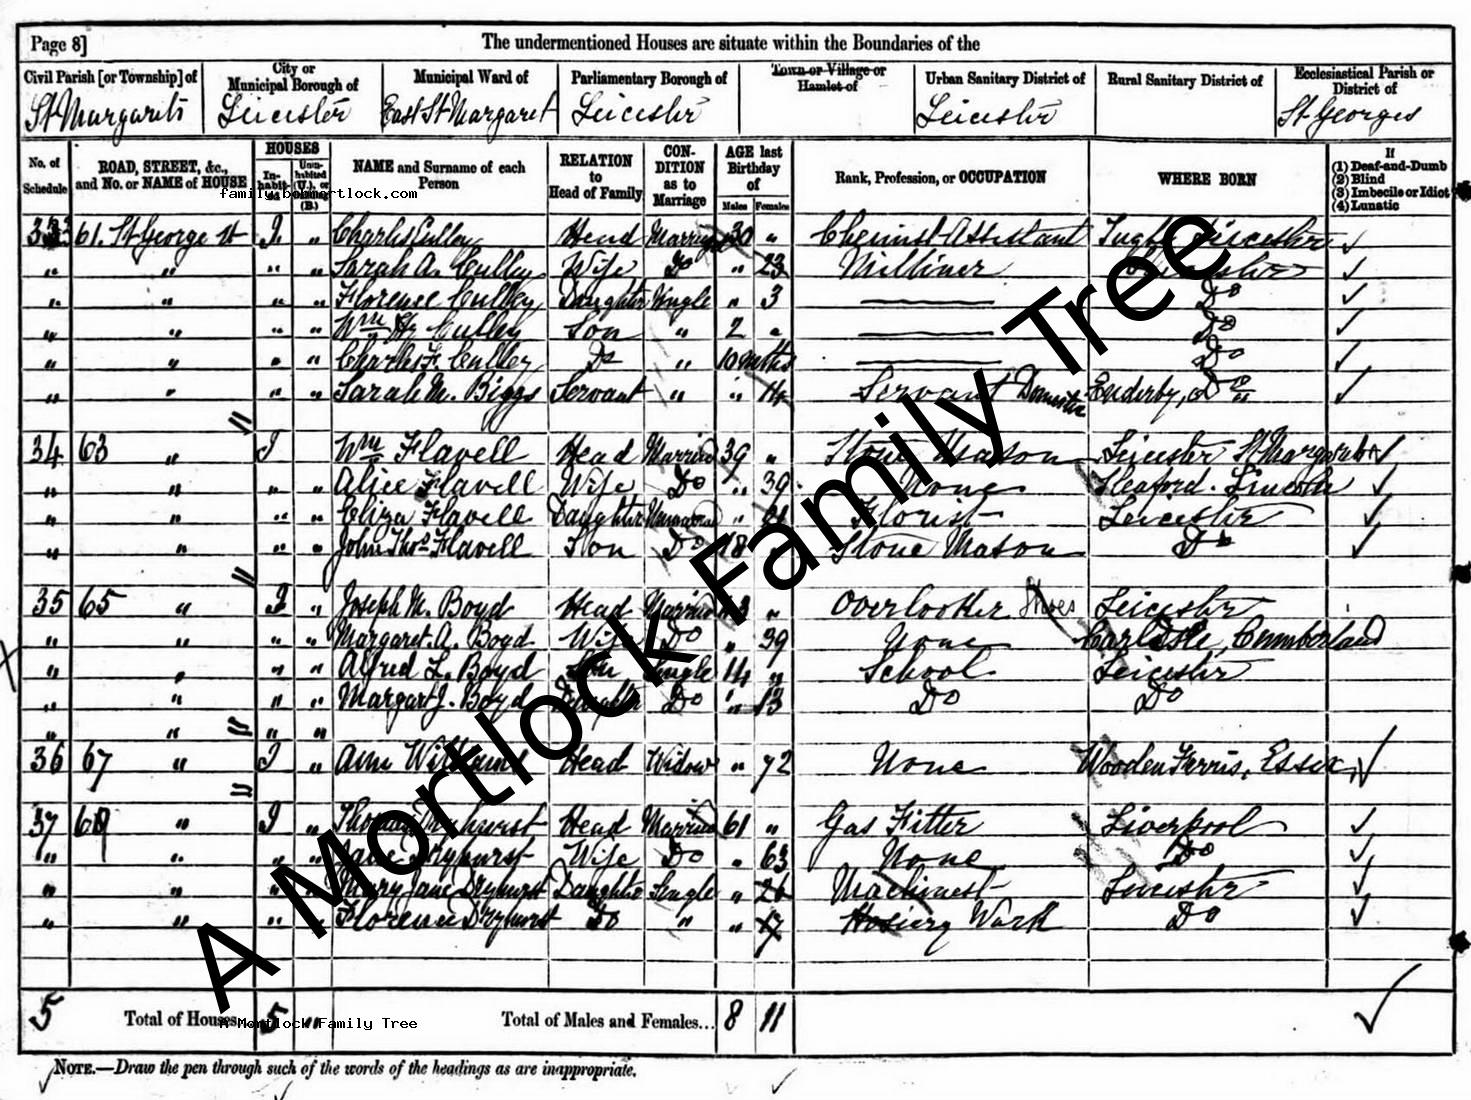 Page 8]
The undermentioned Houses are situate within the Boundaries of the
Civil Parish [or Township] of
City or Municipal Borough of
Municipal Ward of
Parliamentary Borough of
Town or Village or Hamlet of
Urban Sanitary District of
Rural Sanitary District of
Ecclesiastical Parish or District of
St Margarets Leicester East St Margaret Leicester Leicester St Georges
No. of Schedule
ROAD, STREET, &c., and No. or NAME of HOUSE
HOUSES
In-habit-ed
Unin-habited (U.), or Building (B.)
NAME and Surname of each Person
RELATION to Head of Family
CON-DITION as to Marriage
AGE last Birthday of
Males Females
Rank, Profession, or OCCUPATION
WHERE BORN
If
(1) Deaf-and-Dumb
(2) Blind
(3) Imbecile or Idiot
(4) Lunatic
family.bobmortlock.com
33 61. St George St I " Charles Culley Head Married 30 " Chemist Assistant Leicester
" " " " Sarah A. Culley Wife Do " 23 Milliner
" " " " Florence Culley Daughter Single " 3 Do
" " " " Wm Hy Culley Son " 2 " Do
" " " " Charles F. Culley Do " 10 Mths Do
" " " " Sarah M. Biggs Servant " " 14 Servant Domestic Enderby, Do
34 63 " I Wm Flavell Head Married 39 " Stone Mason Leicester St Margarets
" " " " Alice Flavell Wife Do " 39 None Sleaford. Lincoln
" " " " Eliza Flavell Daughter Unmarried " Florist Leicester
" " " " John Thos Flavell Son Do 18 " Stone Mason Do
35 65 " I " Joseph M. Boyd Head Married " Overlooker Shoes Leicester
" " " " Margaret. A. Boyd Wife Do " 39 None Carlisle, Cumberland
" " " " Alfred L. Boyd Son Single 14 " School Leicester
" " " " Margart J. Boyd Daughter Do " 13 Do Do
" " " "
36 67 " I " Ann Williams Head Widow " 72 None Wooden Ferris, Essex
37 69 " I " Thomas Dryhurst Head Married 61 " Gas Fitter Liverpool
" " " " Jane Dryhurst Wife Do " 63 None Do
" " " " Mary Jane Dryhurst Daughter Single " 26 Machinest Leicester
" " " " Florence Dryhurst Do " " 17 Hosiery Work Do
5 Total of Houses 5 " Total of Males and Females... 8 11
A Mortlock Family Tree
NOTE.—Draw the pen through such of the words of the headings as are inappropriate.
A Mortlock Family Tree